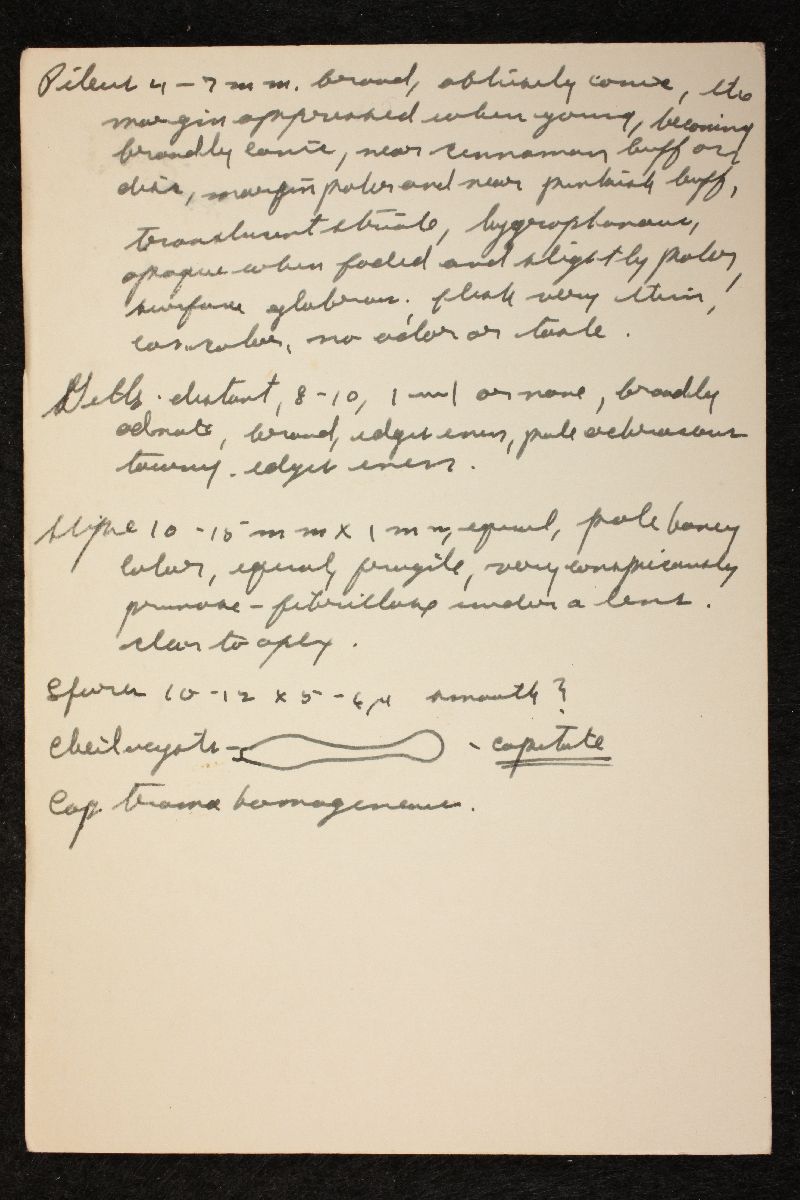 Pileus 4-7 mm. broad, obtusely conic, the
margin appressed when young, becoming
broadly conic, near cinnamon buff on
disc, margin paler and near pinkish buff,
translucent striate, hygrophanous,
opaque when faded and slightly paler,
surface glabrous. flesh very thin,
concolor, no odor or taste.
Gills distant, 8-10, 1 row or none, broadly
adnate, broad, edges even, pale ochraceous
tawny. edges even.
Stipe 10-15 mm x 1 mm, equal, pale honey
color, equal, fragile, very conspicuously
pruinose-fibrillose under a lens.
clear to apex.
Spores 10-12 x 5-6 µ smooth?
Cheilocysts - - capitate
Cap trama homogeneous.